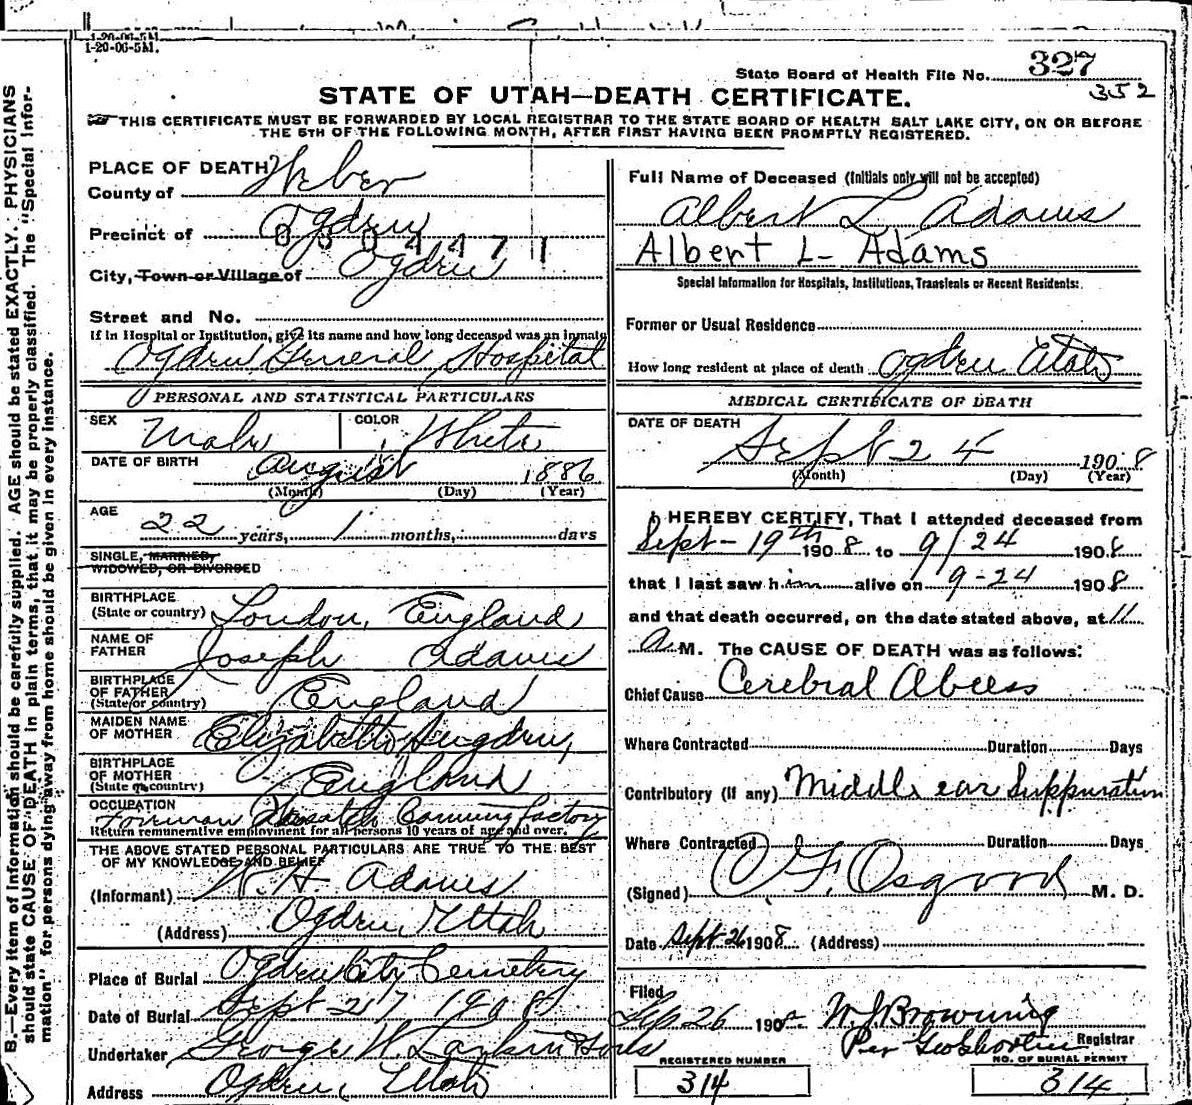 1-20-06-5M.
1-20-06-5M.
State Board of Health File No. 327
352
STATE OF UTAH—DEATH CERTIFICATE.
THIS CERTIFICATE MUST BE FORWARDED BY LOCAL REGISTRAR TO THE STATE BOARD OF HEALTH SALT LAKE CITY, ON OR BEFORE
THE 5TH OF THE FOLLOWING MONTH, AFTER FIRST HAVING BEEN PROMPTLY REGISTERED.
B.—Every item of information should be carefully supplied. AGE should be stated EXACTLY. PHYSICIANS
should state CAUSE OF DEATH in plain terms, that it may be properly classified. The "Special Infor-
mation" for persons dying away from home should be given in every instance.
PLACE OF DEATH
County of Weber
Precinct of Ogden
0304471
City, Town or Village of Ogden
Street and No.
If in Hospital or Institution, give its name and how long deceased was an inmate
Ogden General Hospital
PERSONAL AND STATISTICAL PARTICULARS
SEX Male COLOR White
DATE OF BIRTH August 1886
(Month) (Day) (Year)
AGE
22 years, 1 months, days
SINGLE, MARRIED,
WIDOWED, OR DIVORCED
BIRTHPLACE
(State or country) London, England
NAME OF
FATHER Joseph Adams
BIRTHPLACE
OF FATHER
(State or country) England
MAIDEN NAME
OF MOTHER Elizabeth
BIRTHPLACE
OF MOTHER
(State or country) England
OCCUPATION
Foreman Wasatch Canning factory
Return remunerative employment for all persons 10 years of age and over.
THE ABOVE STATED PERSONAL PARTICULARS ARE TRUE TO THE BEST
OF MY KNOWLEDGE AND BELIEF
(Informant) W. H. Adams
(Address) Ogden, Utah
Place of Burial Ogden City Cemetery
Date of Burial Sept 27 1908
Undertaker George W. Larkin & Sons
Address Ogden, Utah
Full Name of Deceased (Initials only will not be accepted)
Albert L Adams
Albert L Adams
Special Information for Hospitals, Institutions, Transients or Recent Residents:
Former or Usual Residence
How long resident at place of death Ogden Utah
MEDICAL CERTIFICATE OF DEATH
DATE OF DEATH
Sept 24 1908
(Month) (Day) (Year)
I HEREBY CERTIFY, That I attended deceased from
Sept-19th 1908 to 9/24 1908
that I last saw him alive on 9-24 1908
and that death occurred, on the date stated above, at 11
A M. The CAUSE OF DEATH was as follows:
Chief Cause Cerebral Abcess
Where Contracted Duration Days
Contributory (if any) Middle ear Suppuration
Where Contracted Duration Days
(Signed) O F. Osgood M. D.
Date Sept 26 1908 (Address)
Filed
Sep 26 190 W. J. Browning
Per Registrar
REGISTERED NUMBER
314
NO. OF BURIAL PERMIT
314